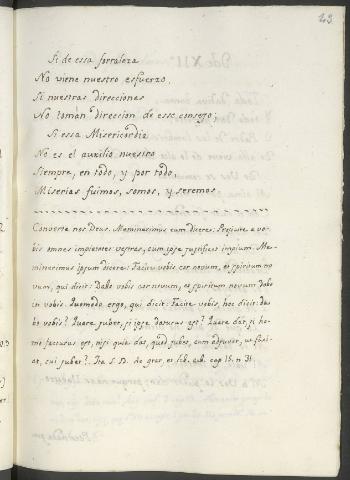 23
Si de essa fortaleza
No viene nuestro esfuerzo,
Si nuestras direcciones
No toman direccion de esse consejo;
Si essa Misericordia
No es el auxilio nuestro
Siempre, en todo, y por todo,
Miserias fuimos, somos, y seremos
Converte nos Deus. Meminerimus eum dicere: Projicite a vo-
bis omnes impietates vestras, cum ipse justificet impium. Me-
minerimus ipsum dicere: Facite vobis cor novum, et spiritum no
vum, qui dicit: Dabo vobis cor novum, et spiritum novum dabo
in vobis. Quomodo ergo, qui dicit: Facite vobis, hoc dicit da-
bo vobis? Quare jubet, si ipse daturus est? Quare dat, si ho-
mo facturus est, nisi quia dat, quod jubet, cum adjuvat, ut faci-
at, cui jubet? Ita S. D. de grat. et lib. arb. cap. 15. n. 31.